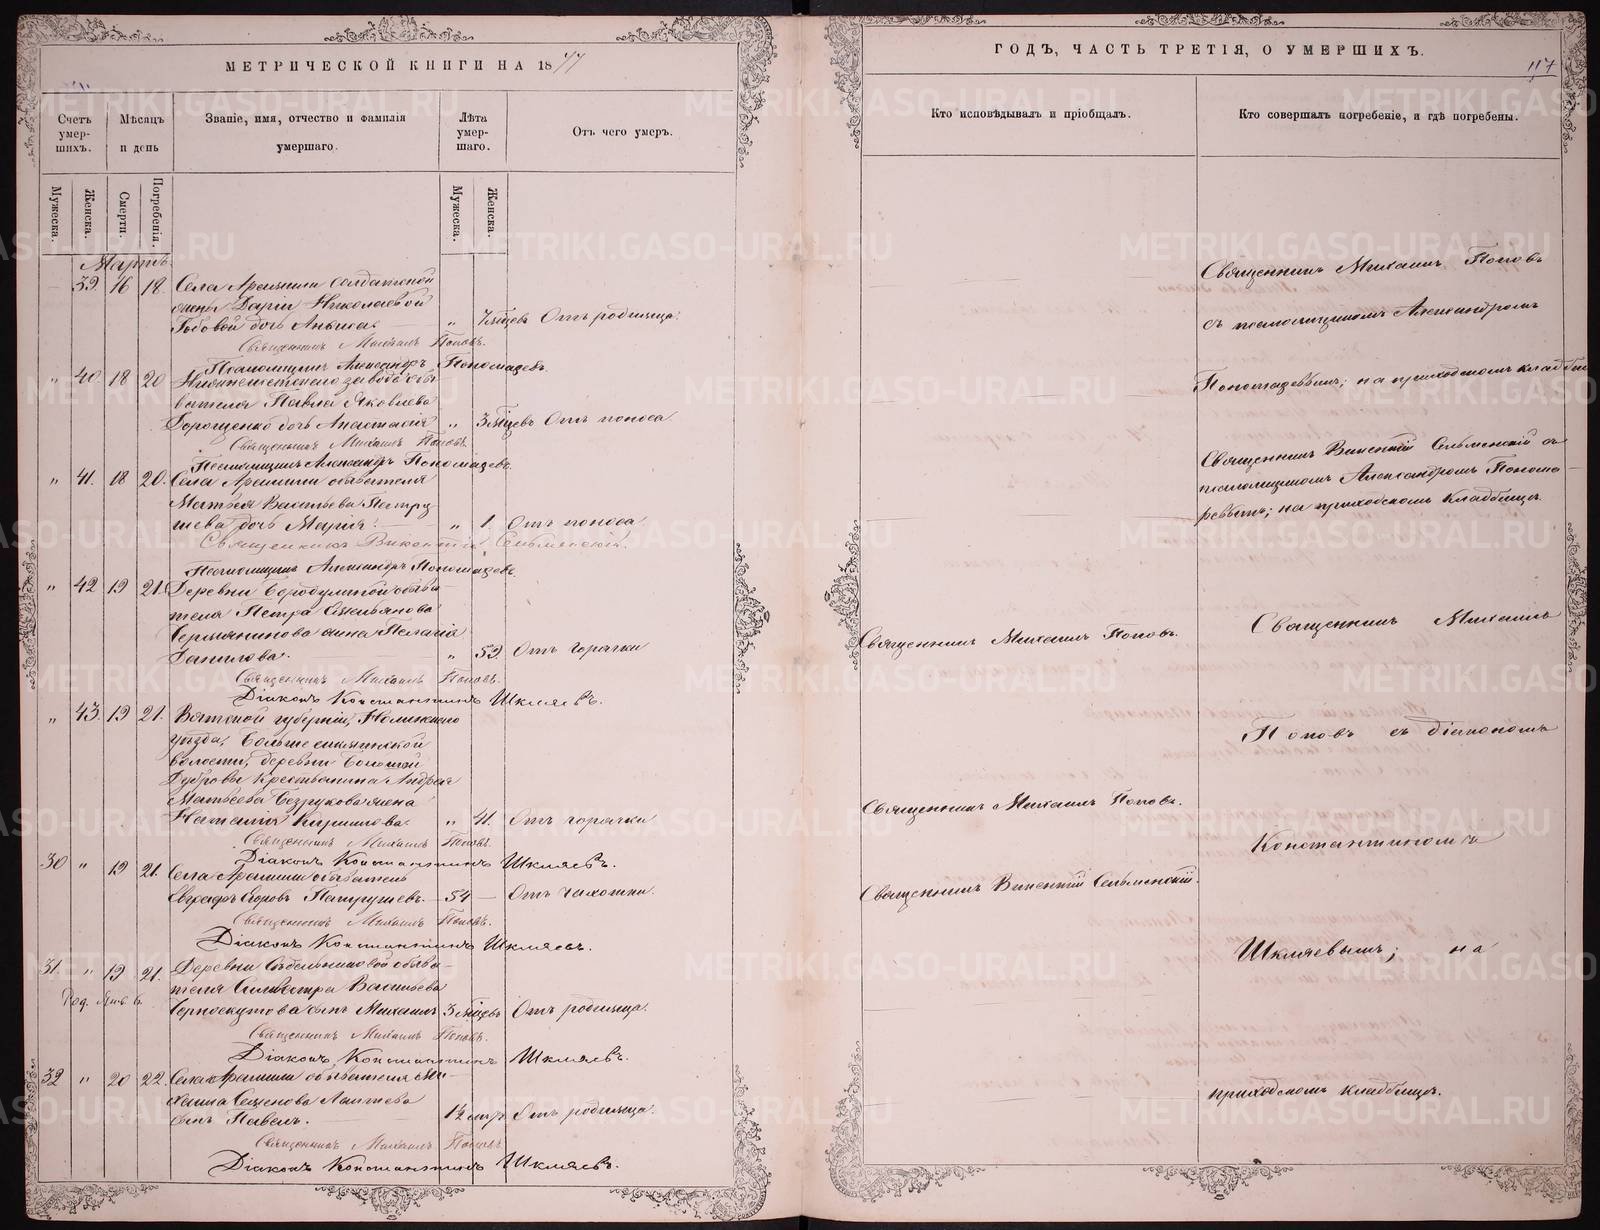 МЕТРИЧЕСКОЙ КНИГИ НА 1877
Счетъ умер-шихъ.
Мѣсяцъ и день
Званіе, имя, отчество и фамилія умершаго.
Лѣта умер-шаго.
Отъ чего умеръ.
Мужеска.
Женска.
Смерти.
Погребенія.
Мужеска.
Женска.
Мартъ.
39. 16 18. Села Арамили солдатской
жены Даріи Николаевой
дочь " 7 мѣсяцевъ Отъ родимца.
Священникъ Михаилъ Поповъ.
Псаломщикъ Александръ Пономаревъ.
" 40. 18 20 завода обы-
вателя Павла Яковлева
дочь Анастасія " 3 мѣсяцевъ Отъ поноса.
Священникъ Михаилъ Поповъ.
Псаломщикъ Александръ Пономаревъ.
" 41. 18 20. Села Арамили обывателя
Матвѣя Васильева Патру-
шева дочь Марія. " 1. Отъ поноса
Священникъ Викентій Сельменскій.
Псаломщикъ Александръ Пономаревъ.
" 42 19 21. Деревни Бородулиной обыва-
теля Петра
жена Пелагія
Данилова. " 59. Отъ горячки
Священникъ Михаилъ Поповъ.
Діаконъ Константинъ Шкляевъ.
" 43. 19 21. Вятской губерніи,
уѣзда,
волости, деревни Большой
Дубровы крестьянина Андрея
Матвѣева Безрукова жена
Наталія Кириллова. " 41. Отъ горячки
Священникъ Михаилъ Поповъ.
Діаконъ Константинъ Шкляевъ.
30 " 19 21. Села Арамили обыватель
Евграфъ Егоровъ Патрушевъ. 54 — Отъ чахотки.
Священникъ Михаилъ Поповъ.
Діаконъ Константинъ Шкляевъ.
31. " 19 21. Деревни обыва-
теля Сильвестра Васильева
Черноскутова сынъ Михаилъ 3 мѣсяцевъ Отъ родимца.
Священникъ Михаилъ Поповъ.
Діаконъ Константинъ Шкляевъ.
32 " 20 22. Села Арамили обывателя Ми-
хаила Семенова Лаптева
сынъ Павелъ. 1½ Отъ родимца.
Священникъ Михаилъ Поповъ
Діаконъ Константинъ Шкляевъ.
ГОДЪ, ЧАСТЬ ТРЕТІЯ, О УМЕРШИХЪ.
117
Кто исповѣдывалъ и пріобщалъ.
Кто совершалъ погребеніе, и гдѣ погребены.
Священникъ Михаилъ Поповъ
съ псаломщикомъ Александромъ
Пономаревымъ; на приходскомъ кладбищѣ
Священникъ Викентій Сельменскій съ
псаломщикомъ Александромъ Понома-
ревымъ; на приходскомъ кладбищѣ.
Священникъ Михаилъ Поповъ.
Священникъ Михаилъ
Поповъ съ діакономъ
Священникъ Михаилъ Поповъ.
Константиномъ
Священникъ Викентій Сельменскій.
Шкляевымъ; на
приходскомъ кладбищѣ.
METRIKI.GASO-URAL.RU